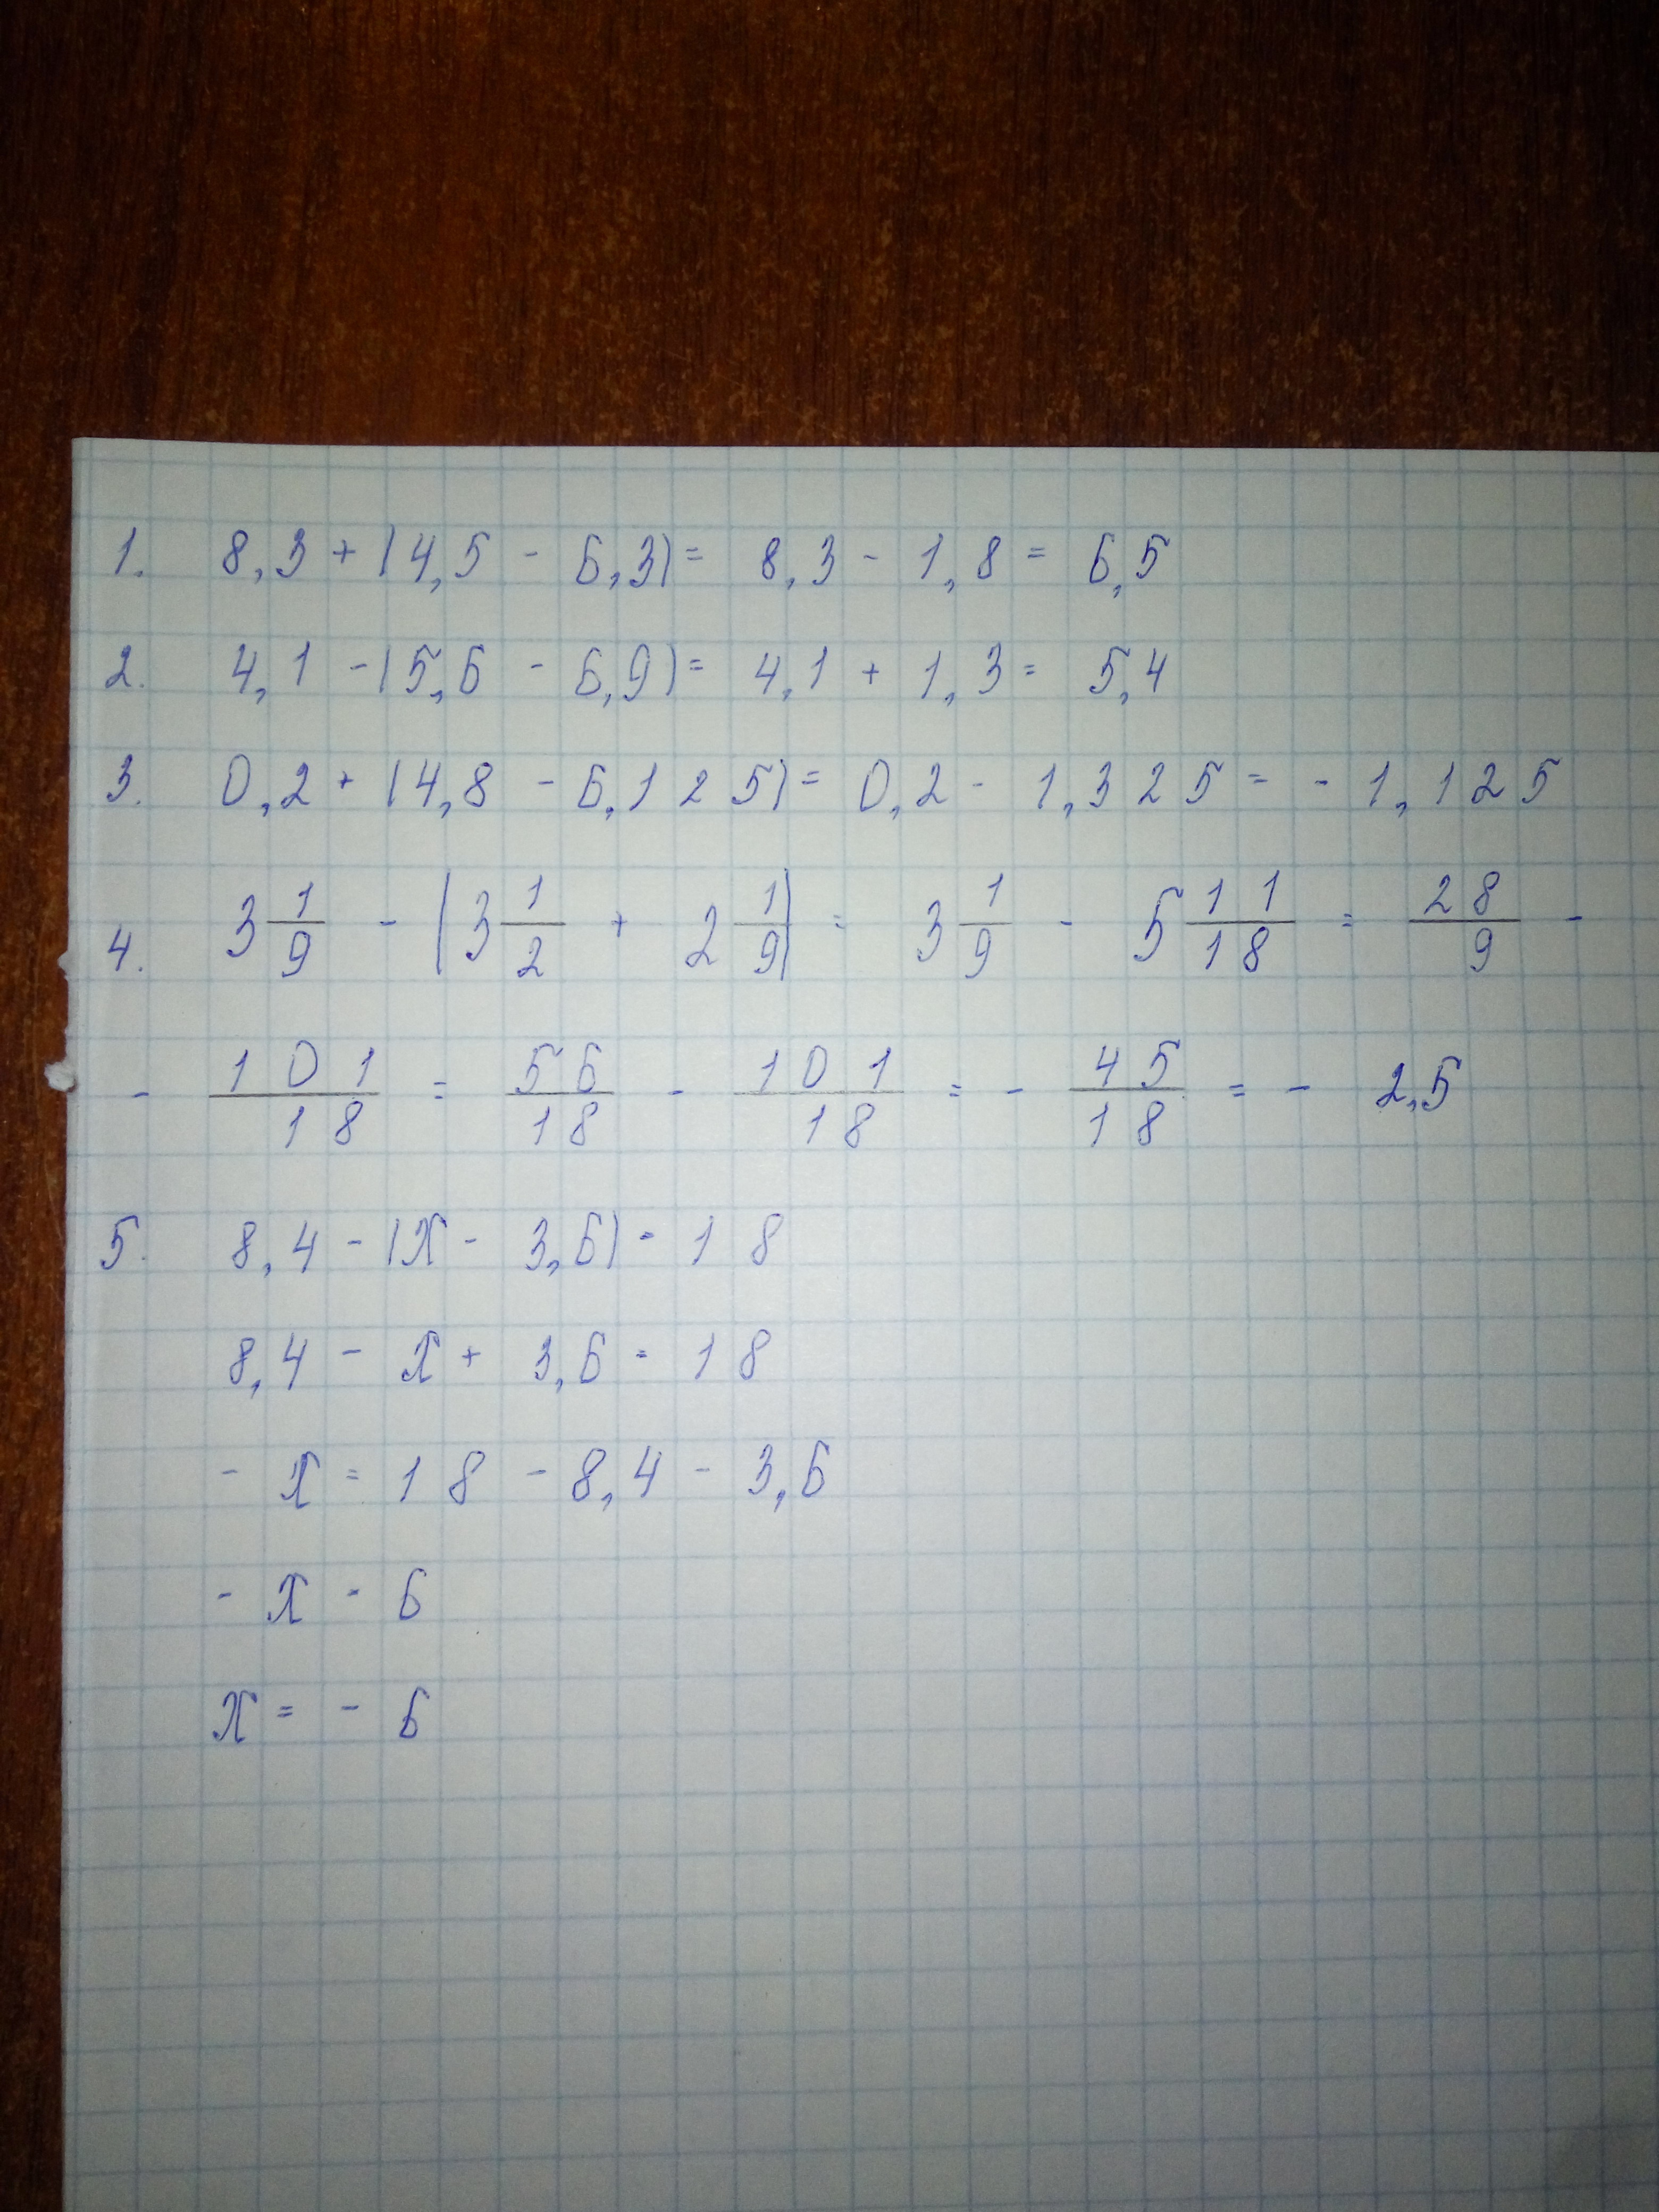 1. 8,3 + (4,5 - 6,3) = 8,3 - 1,8 = 6,5
2. 4,1 - (5,6 - 6,9) = 4,1 + 1,3 = 5,4
3. 0,2 + (4,8 - 6,125) = 0,2 - 1,325 = - 1,125
4. 3 1/9 - (3 1/2 + 2 1/9) = 3 1/9 - 5 11/18 = 28/9 -
- 101/18 = 56/18 - 101/18 = - 45/18 = - 2,5
5. 8,4 - (x - 3,6) = 18
8,4 - x + 3,6 = 18
- x = 18 - 8,4 - 3,6
- x = 6
x = - 6